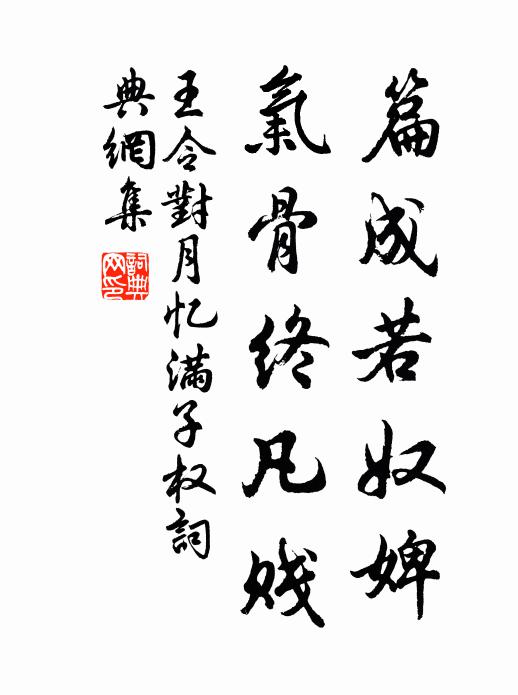 篇成若奴婢
氣骨終凡賤
王令對月忆满子权詞
典網集
詞典网印